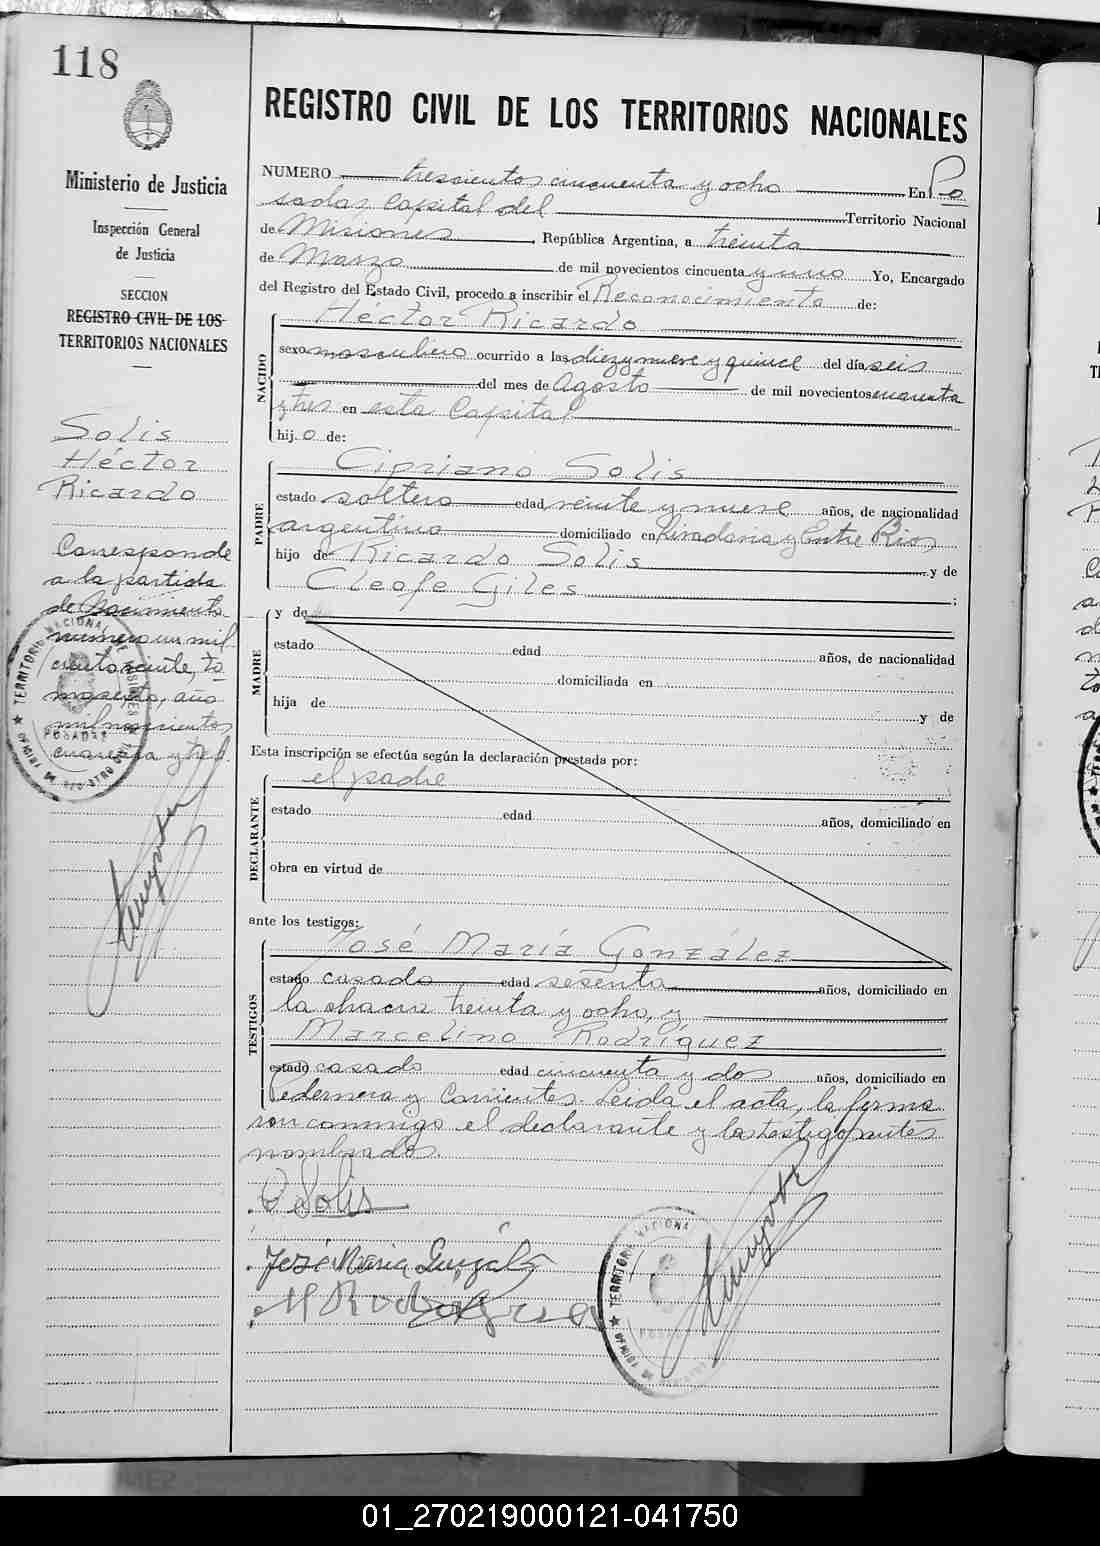 118
Ministerio de Justicia
Inspección General
de Justicia
SECCION
REGISTRO CIVIL DE LOS
TERRITORIOS NACIONALES
Solis
Héctor
Ricardo
Corresponde
a la partida
de Nacimiento
número un mil
ciento veinte, to
mo sexto, año
mil novecientos
cuarenta y tres.
REGISTRO CIVIL DE LOS TERRITORIOS NACIONALES
NUMERO trescientos cincuenta y ocho En Po
sadas Capital del Territorio Nacional
de Misiones, República Argentina, a treinta
de Marzo de mil novecientos cincuenta y uno Yo, Encargado
del Registro del Estado Civil, procedo a inscribir el Reconocimiento de:
Héctor Ricardo
NACIDO
sexo masculino ocurrido a las diez y nueve y quince del día seis
del mes de Agosto de mil novecientos cuarenta
y tres en esta Capital
hijo de:
Cipriano Solis
PADRE
estado soltero edad veinte y nueve años, de nacionalidad
argentino domiciliado en Rivadavia y Entre Rios
hijo de Ricardo Solis y de
Cleofe Giles;
MADRE
y de
estado edad años, de nacionalidad
domiciliada en
hija de y de
Esta inscripción se efectúa según la declaración prestada por:
el padre
DECLARANTE
estado edad años, domiciliado en
obra en virtud de
ante los testigos:
José María González
TESTIGOS
estado casado edad sesenta años, domiciliado en
la chacra treinta y ocho, y
Marcelino Rodríguez
estado casado edad cincuenta y dos años, domiciliado en
Pedernera y Corrientes. Leida el acta, la firma
ron conmigo el declarante y los testigos antes
nombrados.
C Solis
José Maria González
M Rodriguez
TERRITORIO NACIONAL
POSADAS
01_270219000121-041750